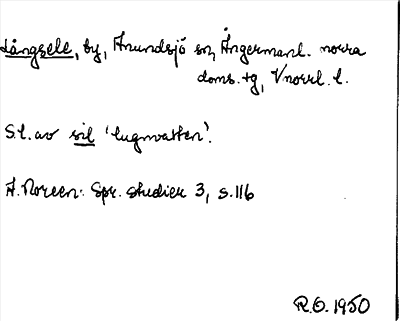 Långsele, by, Anundsjö sn, Ångermanl. norra
doms. tg, Vnorrl. l.
S.l. av sil 'lugnvatten'.
A. Noreen: Spr. studier 3, s. 116
R.O. 1950